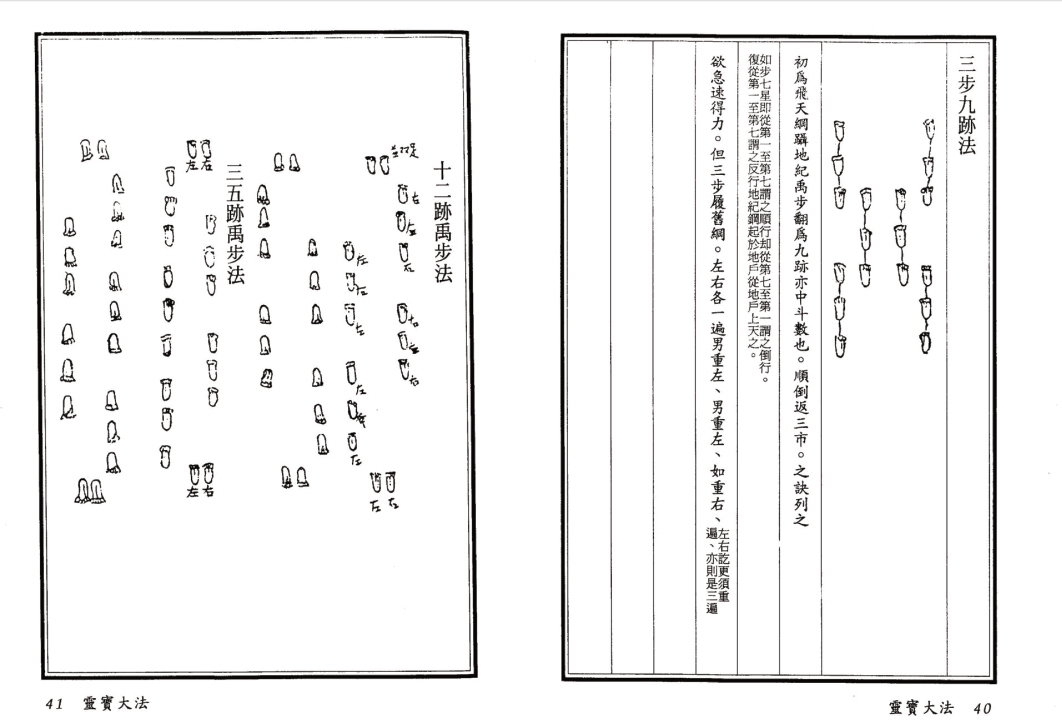 三步九跡法
初為飛天綱躡地紀禹步翻為九跡亦中斗數也。順倒返三市。之訣列之
如步七星即從第一至第七謂之順行却從第七至第一謂之倒行。
復從第一至第七謂之反行地紀綱起於地戶從地戶上天之。
欲急速得力。但三步履舊綱。左右各一遍男重左、男重左、如重右、
左右訖更須重
遍、亦則是三遍
靈寶大法 40
十二跡禹步法
右
左
右
右
左
右
左 右
左
右
左
左
左
三五跡禹步法
左 右
左 右
41 靈寶大法